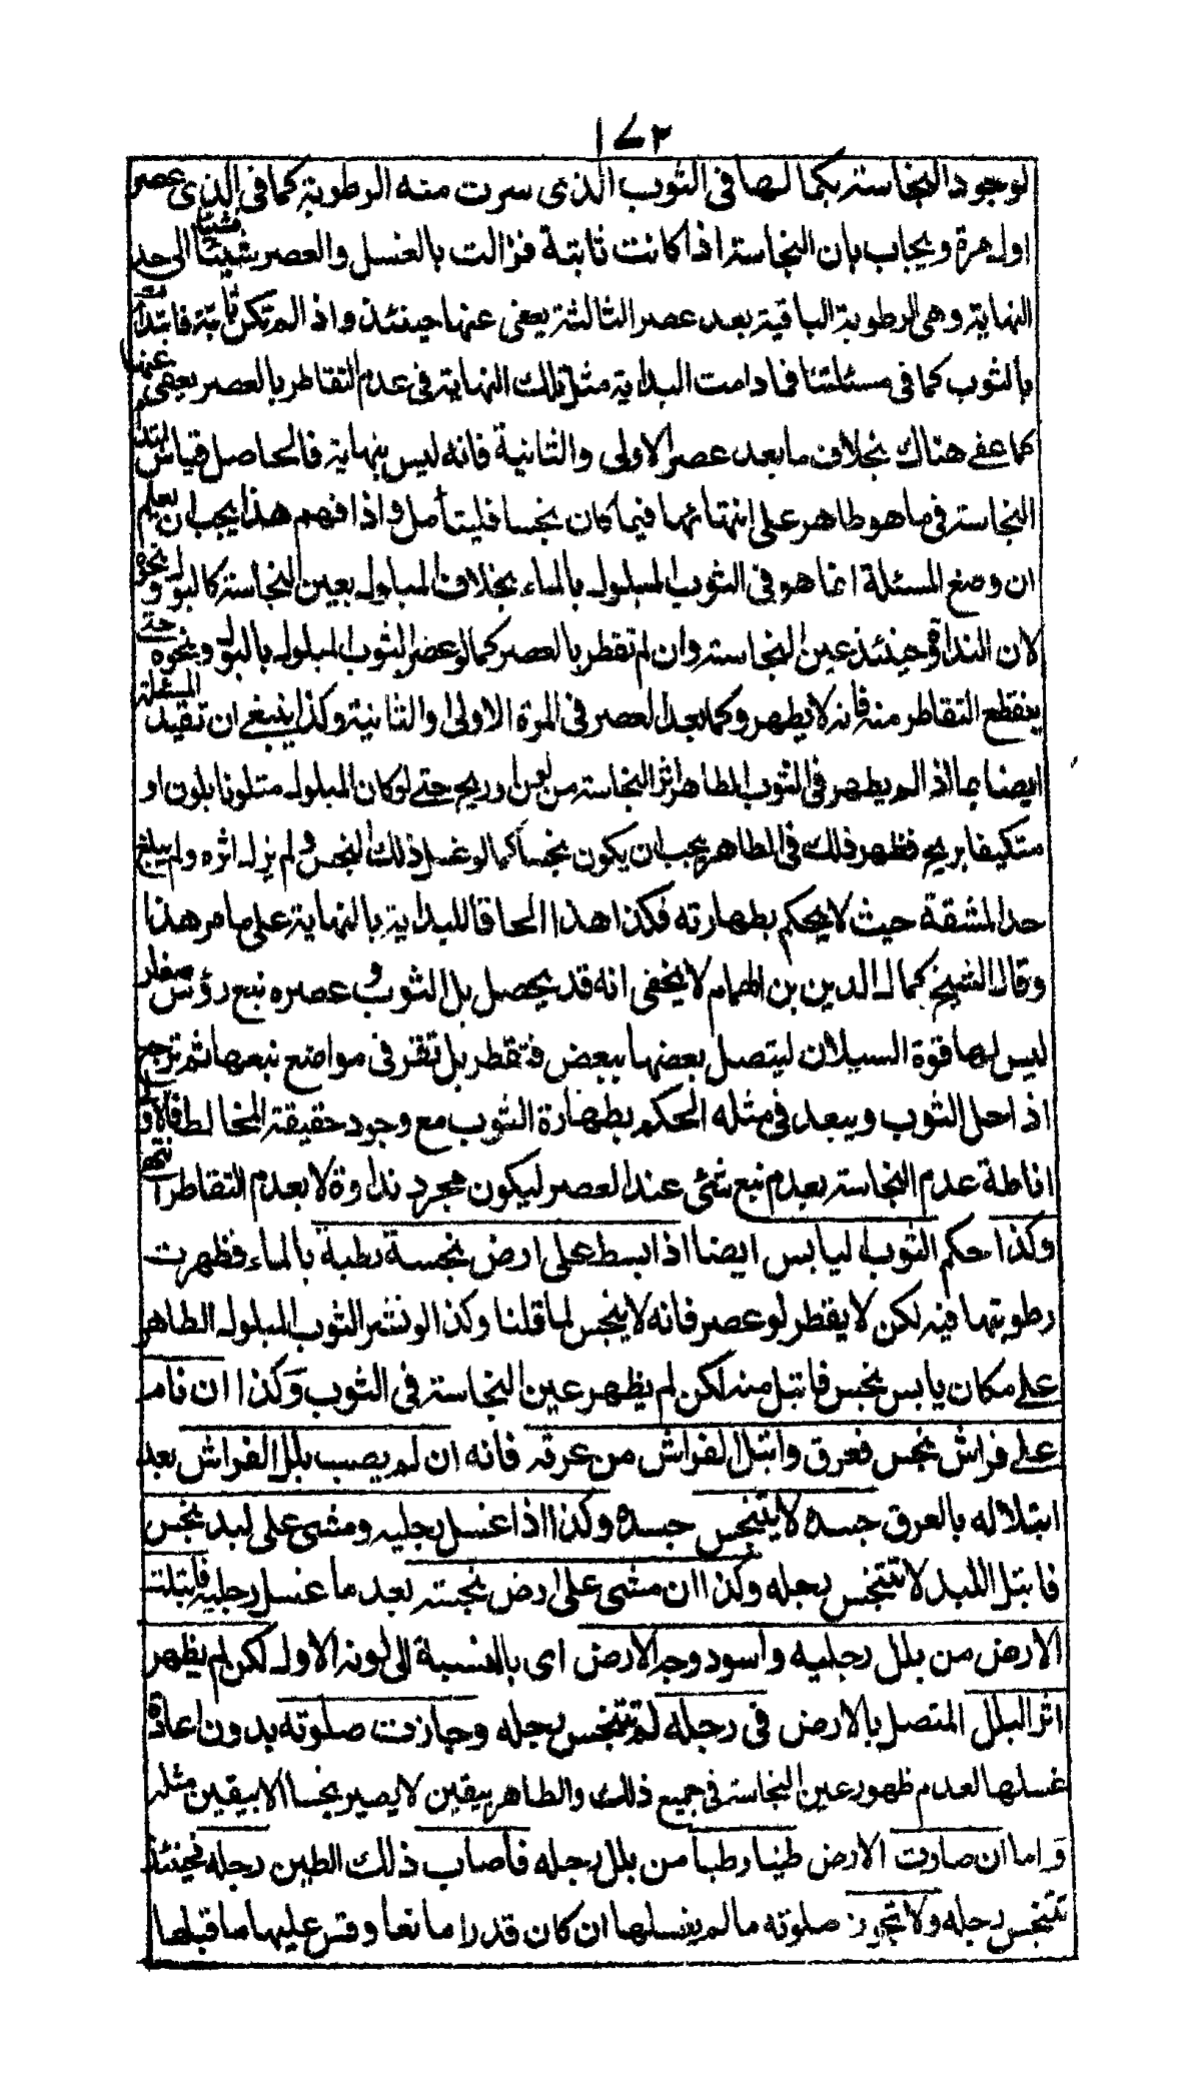 ١٧٣
لوجود النجاسة بكمالها فى الثوب الذى سرت منه الرطوبة كما فى الذى عصر
اول مرة ويجاب بان النجاسة اذا كانت ثابتة فزالت بالغسل والعصر شيئا شيئا الى حد
النهاية وهى الرطوبة الباقية بعد عصر الثالثة يعفى عنها حينئذ واذا لم تكن ثابتة فابتدات
بالثوب كما فى مسئلتنا فما دامت البداية مثل تلك النهاية فى عدم التقاطر بالعصر يعفى عنها
كما عفى هناك بخلاف ما بعد عصر الاولى والثانية فانه ليس بنهاية فالحاصل قياس ابتداء
النجاسة فى ما هو طاهر على انتهائها فيما كان نجسا فليتأمل واذا فهم هذا يجب ان يعلم
ان وضع المسئلة انما هو فى الثوب المبلول بالماء بخلاف المبلول بعين النجاسة كالبول ونحوه
لان النداوة حينئذ عين النجاسة وان لم تقطر بالعصر كما لو عصر الثوب المبلول بالبول ونحوه حتى
ينقطع التقاطر منه فانه لا يطهر وكما بعد العصر فى المرة الاولى والثانية وكذا ينبغى ان تقيد المسئلة
ايضا بما اذا لم يظهر فى الثوب الطاهر اثر النجاسة من لون او ريح حتى لو كان المبلول متلونا بلون او
متكيفا بريح فظهر ذلك فى الطاهر يجب ان يكون نجسا كما لو غسل ذلك النجس ولم يزل اثره ولم يبلغ
حد المشقة حيث لا يحكم بطهارته فكذا هذا الحاقا للبداية بالنهاية على ما مر هذا
وقال الشيخ كمال الدين بن الهمام لا يخفى انه قد يحصل بل الثوب وعصره نبع رؤس صغار
ليس لها قوة السيلان ليتصل بعضها ببعض فتقطر بل تقر فى مواضع نبعها ثم ترجع
اذا حل الثوب ويبعد فى مثله الحكم بطهارة الثوب مع وجود حقيقة المخالط فالاولى
اناطة عدم النجاسة بعدم نبع شئ عند العصر ليكون مجرد نداوة لا بعدم التقاطر انتهى
وكذا حكم الثوب اليابس ايضا اذا بسط على ارض نجسة رطبة بالماء فظهرت
رطوبتها فيه لكن لا يقطر لو عصر فانه لا ينجس لما قلنا وكذا لو نشر الثوب المبلول الطاهر
على مكان يابس نجس فابتل منه لكن لم يظهر عين النجاسة فى الثوب وكذا ان نام
على فراش نجس فعرق وابتل الفراش من عرقه فانه ان لم يصب بلل الفراش بعد
ابتلاله بالعرق جسده لا يتنجس جسده وكذا اذا غسل رجليه ومشى على لبد نجس
فابتل اللبد لا تتنجس رجله وكذا ان مشى على ارض نجسة بعد ما غسل رجليه فابتلت
الارض من بلل رجليه واسود وجه الارض اى بالنسبة الى لونه الاول لكن لم يظهر
اثر البلل المتصل بالارض فى رجله لم تتنجس رجله وجازت صلوته بدون اعادة
غسلها لعدم ظهور عين النجاسة فى جميع ذلك والطاهر بيقين لا يصير نجسا الا بيقين مثله
واما ان صارت الارض طينا رطبا من بلل رجله فاصاب ذلك الطين رجله فحينئذ
تتنجس رجله ولا تجوز صلوته ما لم يغسلها ان كان قدرا مانعا وقس عليها ما قبلها